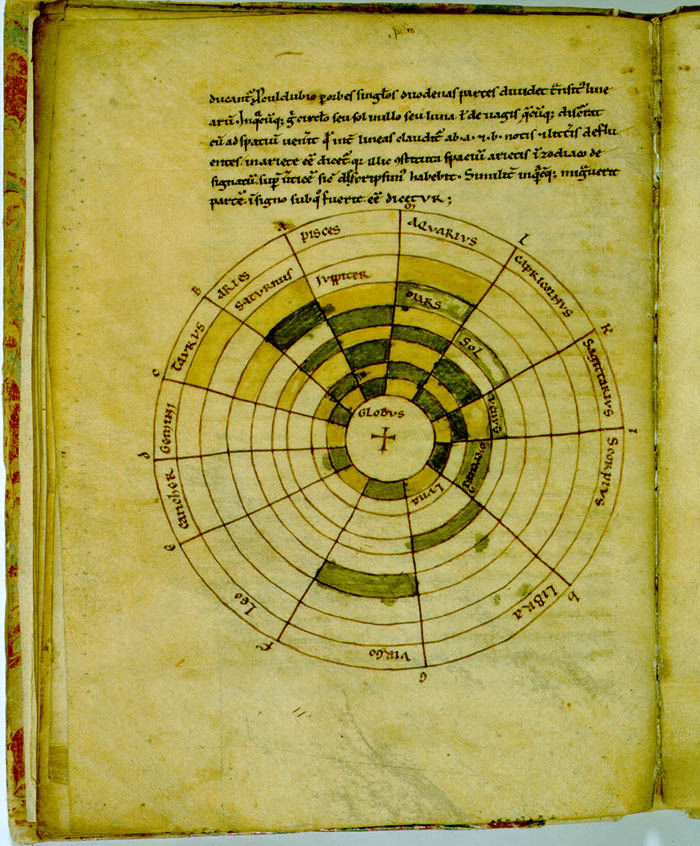 ducant᷑ ꝓculdubio ꝑ orbes singłos duodenas partes diuidet t᷑nsit᷒ line
arū. Inq̄cūq; g̊ circło seu sol in illo seu luna ł de uagis q̄cūq; discurrat
cū ad spatiū uenit qd̄ int̄ lineas claudit᷑ ab .a. ⁊ .b. notis ⁊ litt̄is deflu
entes. in ariete eē dicet᷑ qr illic ꝯstituta spaciū arietis ī zodiaco de
signatū. suꝑ uticē sic descripsim᷒ habebit. Similit̄ inq̄cūq; mig̊uerit
partē. ī signo sub q̊ fuerit. eē dicetur;
A
PISCES
g
AQUARIUS
L
CAPRICORNUS
K
SAGITTARIUS
I
SCORPIUS
h
LIBRA
G
VIRGO
F
LEO
E
CANCHER
d
GEMINI
c
TAURUS
B
ARIES
SATURNUS
IUPPITER
MARS
SOL
VENUS
MERCURIUS
LUNA
GLOBUS